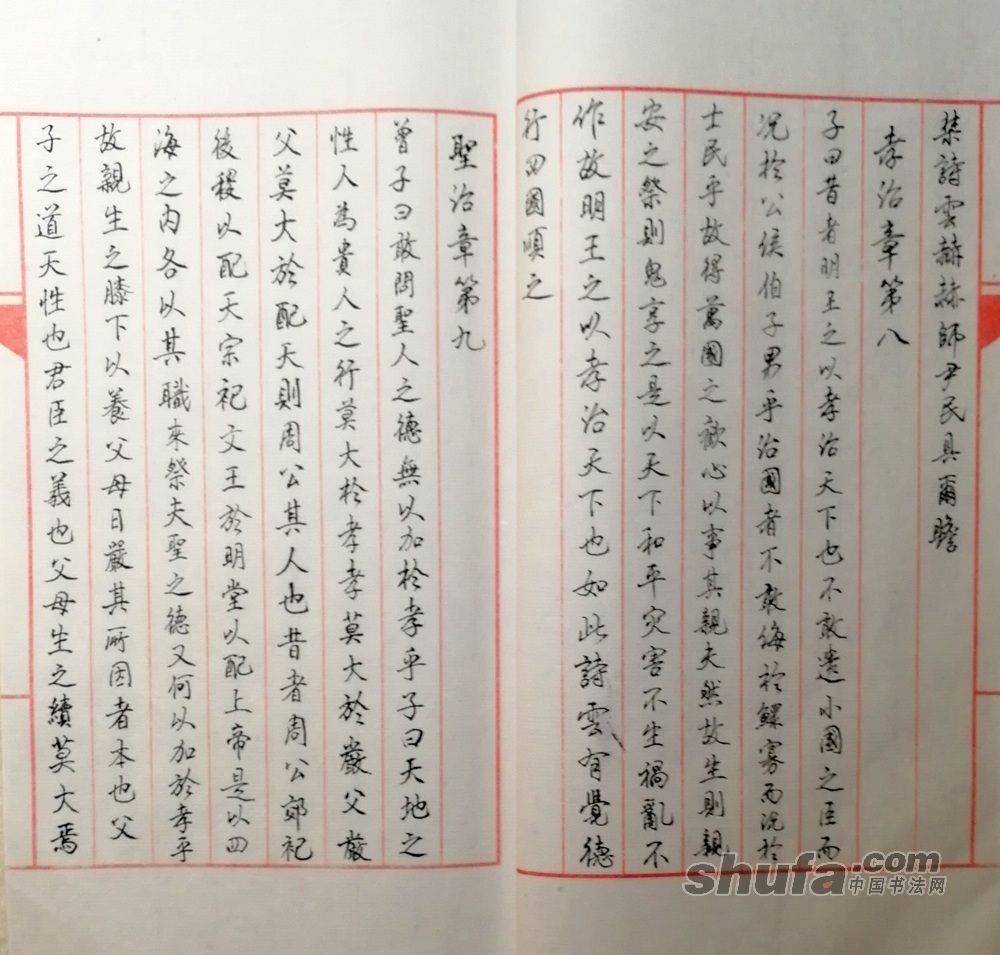 焚詩雲赫赫師尹民具爾瞻
孝治章第八
子曰昔者明王之以孝治天下也不敢遺小國之臣而
況於公侯伯子男乎治國者不敢侮於鰥寡而況於
士民乎故得萬國之歡心以事其親夫然故生則親
安之祭則鬼享之是以天下和平災害不生禍亂不
作故明王之以孝治天下也如此詩雲有覺德
行四國順之
聖治章第九
曾子曰敢問聖人之德無以加於孝乎子曰天地之
性人為貴人之行莫大於孝孝莫大於嚴父嚴
父莫大於配天則周公其人也昔者周公郊祀
後稷以配天宗祀文王於明堂以配上帝是以四
海之內各以其職來祭夫聖之德又何以加於孝乎
故親生之膝下以養父母日嚴其所因者本也父
子之道天性也君臣之義也父母生之續莫大焉
shufa.com
中国书法网